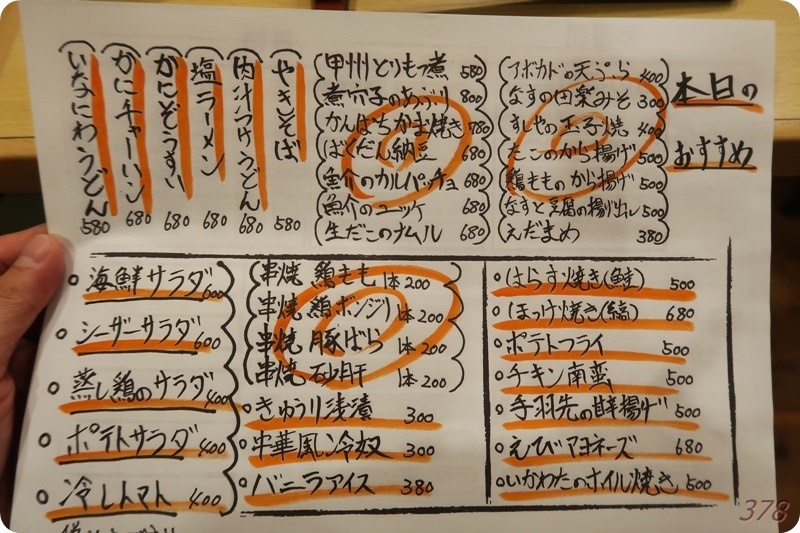 本日の
おすすめ
アボカドの天ぷら 400
なすの田楽みそ 300
すしやの玉子焼 400
たこのから揚げ 500
鶏もものから揚げ 500
なすと豆腐の揚げ出し 500
えだまめ 380
甲州とりもつ煮 580
煮穴子のあぶり 800
かんぱちかま焼き 780
ばくだん納豆 680
魚介のカルパッチョ 680
魚介のユッケ 680
生だこのナムル 680
やきそば 580
肉汁つけうどん 680
塩ラーメン 680
かにぞうすい 680
かにチャーハン 680
いなにわうどん 580
海鮮サラダ 600
シーザーサラダ 600
蒸し鶏のサラダ 400
ポテトサラダ 400
冷しトマト 400
串焼 鶏もも 1本200
串焼 鶏ボンジリ 1本200
串焼 豚ばら 1本200
串焼 砂肝 1本200
きゅうり浅漬 300
中華風冷奴 300
バニラアイス 380
はらす焼き(鮭) 500
ほっけ焼き(縞) 680
ポテトフライ 500
チキン南蛮 500
手羽先の甘辛揚げ 500
えびマヨネーズ 680
いかわたのホイル焼き 500
378